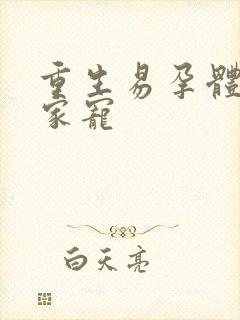 重生易孕體
家寵
白天亮